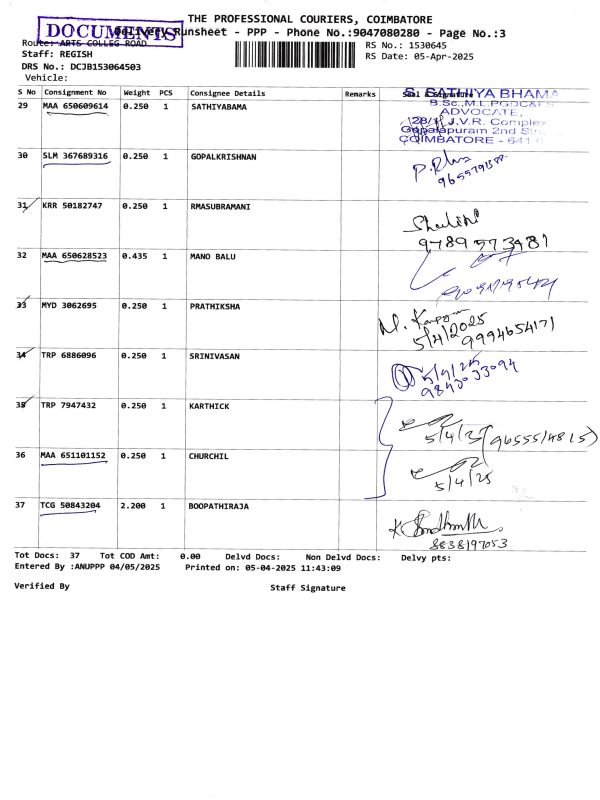 THE PROFESSIONAL COURIERS, COIMBATORE
DOCUMENTS
Delivery Runsheet - PPP - Phone No.:9047080280 - Page No.:3
Route: ARTS COLLEG ROAD
RS No.: 1530645
Staff: REGISH
RS Date: 05-Apr-2025
DRS No.: DCJB153064503
Vehicle:
S No Consignment No Weight PCS Consignee Details Remarks Seal & Signature
29 MAA 650609614 0.250 1 SATHIYABAMA
S. SATHIYA BHAMA
B.Sc.,M.L.PGDC&FS
ADVOCATE,
128/1 J.V.R. Complex
Gopalapuram 2nd
COIMBATORE - 641 0
30 SLM 367689316 0.250 1 GOPALKRISHNAN
31 KRR 50182747 0.250 1 RMASUBRAMANI
Shalini
9789573981
32 MAA 650628523 0.435 1 MANO BALU
33 MYD 3062695 0.250 1 PRATHIKSHA
5/4/2025
9994654171
34 TRP 6886096 0.250 1 SRINIVASAN
5/4/25
9843033094
35 TRP 7947432 0.250 1 KARTHICK
36 MAA 651101152 0.250 1 CHURCHIL
5/4/25
37 TCG 50843204 2.200 1 BOOPATHIRAJA
8838197053
Tot Docs: 37 Tot COD Amt: 0.00 Delvd Docs: Non Delvd Docs: Delvy pts:
Entered By :ANUPPP 04/05/2025 Printed on: 05-04-2025 11:43:09
Verified By Staff Signature